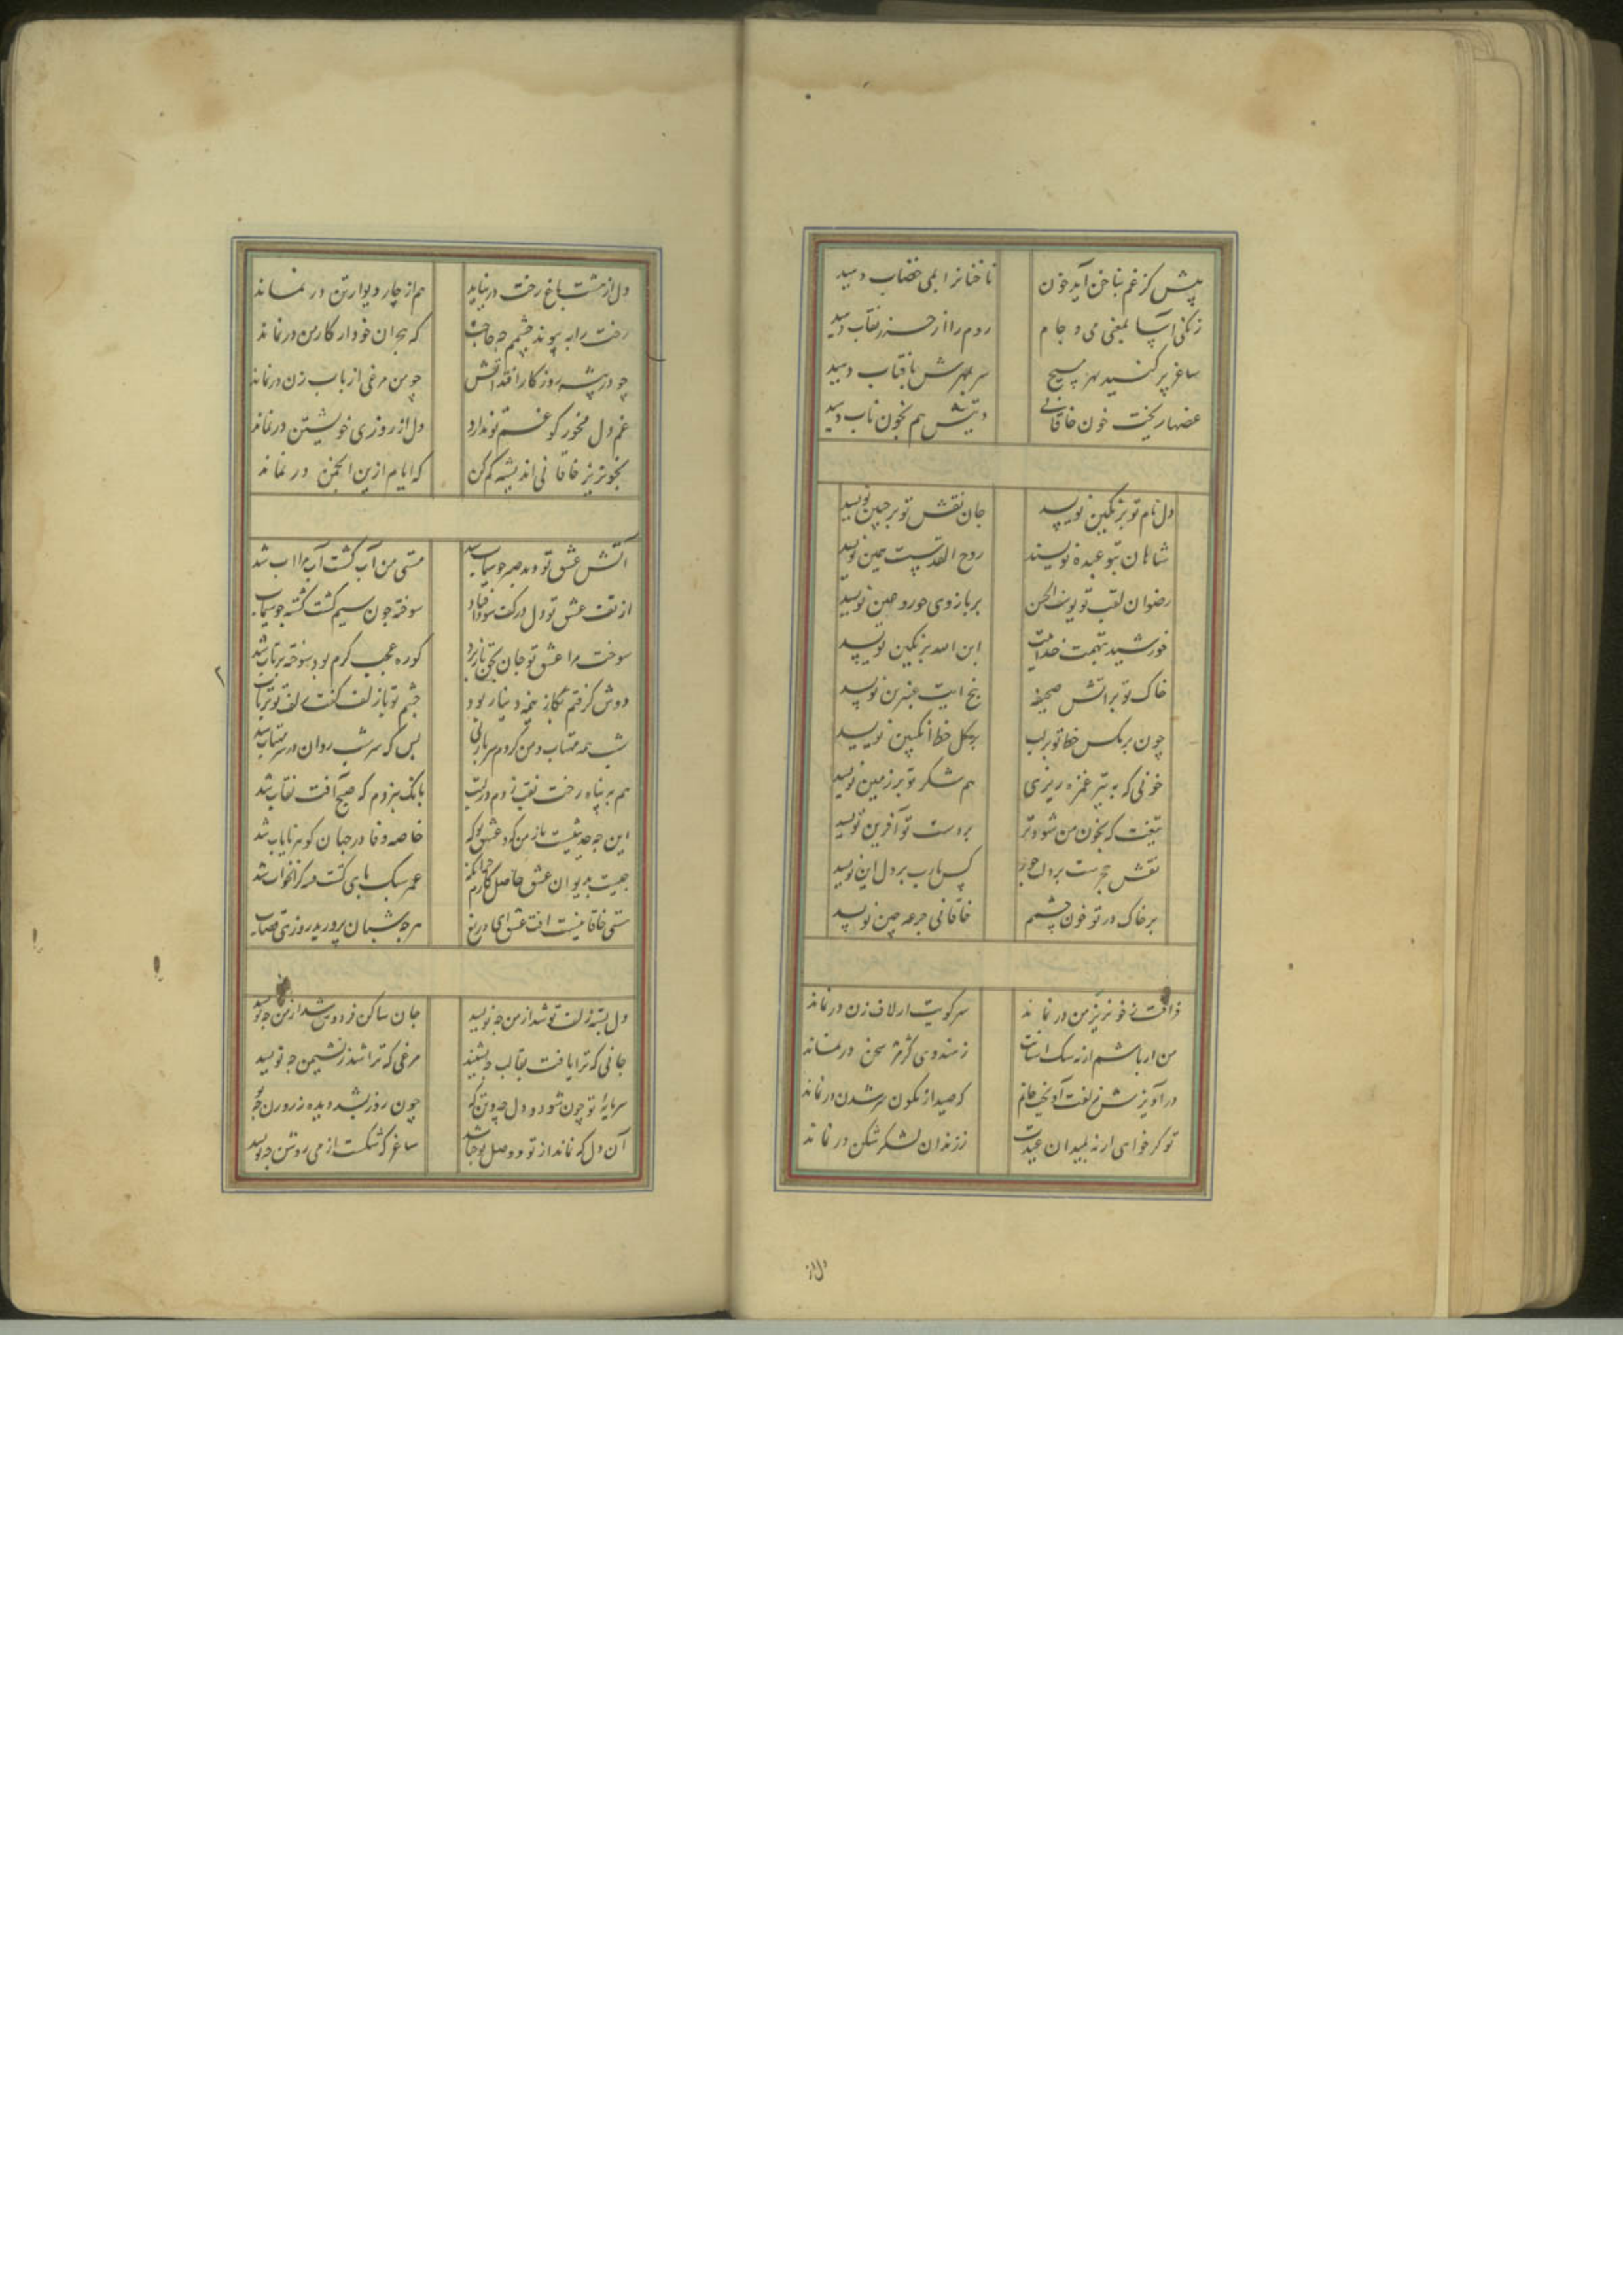 پیش کز غم بناخن آید خون ناخنانرا بمی خضاب دهید
زنکی آسا بمعنی می و جام روم را از خزر نقاب دهید
ساغر پر کنید بهر مسیح سر بمهرش بافتاب دهید
غصها ریخت خون خاقانی دیتش هم بخون ناب دهید
دل نام تو بر نکین نویسد جان نقش تو بر جبین نویسد
شاهان بتو عبده نویسند روح القدست همین نویسد
رضوان لقب تو یوسف الحسن بر بازوی حور و عین نویسد
خورشید بتهمت خداییت ابن امه بر نکین نویسد
خاک تو بر آتش صحیفه پنج آیت عنبرین نویسد
چون بر مکس خط تو بر لب بر کل خط انکبین نویسد
خونی که به تیر غمزه ریزی هم شکر تو بر زمین نویسد
تیغت که بخون من شود تر بر دست تو آفرین نویسد
نقش حجرست بر دل کس یارب بر دل این نویسد
بر خاک در تو خون چشم خاقانی جرعه چین نویسد
زآفت خونریز من در نماند سر کویت از لاف زن در نماند
من ار باشم ار نه سک آستانت ز هندوی کژ مژ سخن در نماند
در آویزش زلفت آویخت جانم که صید از نکون سر شدن در نماند
تو کر خواهی ار نه بمیدان عیدت ز زندان لشکر شکن در نماند
دل از
دل از هشت باغ رخت در نیاید هم از چار دیوار تن در نماند
رخت را به پیوند چشمم چه حاجت که هجران خود ار کار من در نماند
چو در بیشه روزکار افتد آتش چو من مرغی از باب زن در نماند
غم دل مخور کو غم تو ندارد دل از روزی خویشتن در نماند
بخونریز خاقانی اندیشه کم کن که ایام ازین انجمن در نماند
آتش عشق تو دید صبرم و سیماب شد هستی من آب کشت آب مرا آب شد
از تف عشق تو دل در کف سودا فتاد سوخته چون سیم کشت کشته چو سیماب شد
سوخت مرا عشق تو جان کوره عجب کرم بود سوخته پرتاب شد
دوش کرفتم بکاز نیمه دینار تو چشم تو با زلف کفت زلف تو در تاب شد
شب همه مهتاب و من کردم سربازئی بس که سر شب روان در سر مهتاب شد
هم به پناه رخت نقب زدم در لبت بانک بزدم که صبح آفت نقاب شد
این چه حدیثست باز من که و عشق تو که خاصه وفا در جهان کوهر نایاب شد
چیست بدیوان عشق حاصل کارم جز آنکه عمر سبک پای کشت سر کران خواب شد
هستی خاقانیست آفت عشق ای دریغ هر چه شبان پرورید روزی قصاب شد
دل بسته زلف تو شد از من چه نویسد جان ساکن فردوس شد از تن چه نویسد
جانی که ترا یافت بقالب چه نشیند مرغی که ترا شد ز نشیمن چه نویسد
سرمایه تو چون شود دل چه و تن که چون روز بشد دیده ز روزن چه نویسد
آن دل که نماند از تو و وصل تو چه باشد ساغر که شکست از می روشن چه نویسد